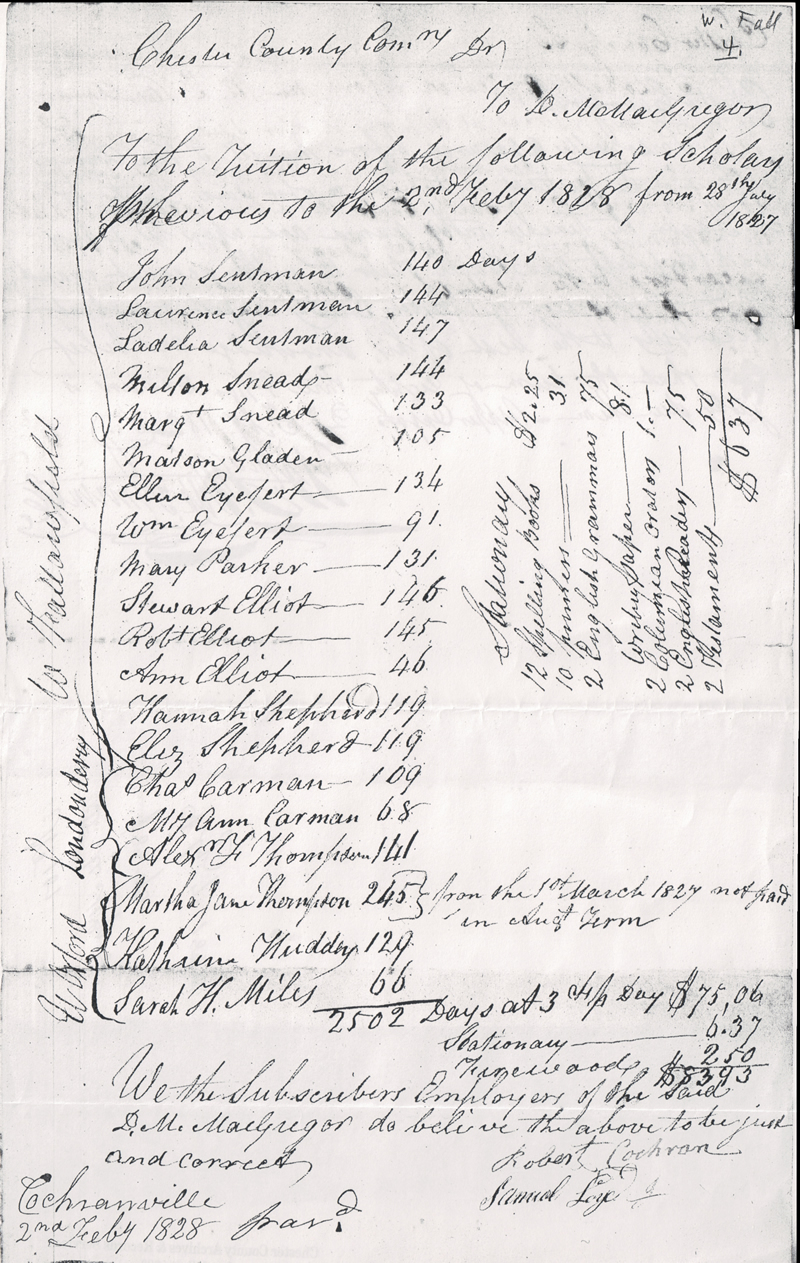 W. Fall
4.
Chester County Comrs Dr
To D. McMacGregor
To the Tuition of the following Scholars
Previous to the 2nd Feby 1828 from 28th July
1827
John Sentman 140 Days
Laurence Sentman 144
Ladelia Sentman 147
Milton Snead 144
Margt Snead 133
Matson Gladen 105
Ellen Eyefert 134
Wm Eyefert 91
Mary Parker 131
Stewart Elliot 146
Robt Elliot 145
Ann Elliot 46
Hannah Shepherd 119
Eliz Shepherd 119
Chas Carman 109
My Ann Carman 68
Alexr F Thompson 141
Martha Jane Thompson 245 } from the 1st March 1827 not paid
in Augt Term
Katherine Huddy 129
Sarah H. Miles 66
2502 Days at 3 cts p Day $75,06
Stationary 6.37
Firewood 2 50
$83 93
We the Subscribers Employers of the Said
D. M. MacGregor do believe the above to be just
and correct
Robert Cochran
Samuel
Cochranville
2nd Feby 1828
W Fallowfield
Londonderry
Oxford
Stationary
12 Spelling Books $2.25
10 Primers 31
2 English Grammars 75
Writing Paper 81
2 Columbian Orators 1.—
2 English Readers 75
2 Testaments 50
$6 37